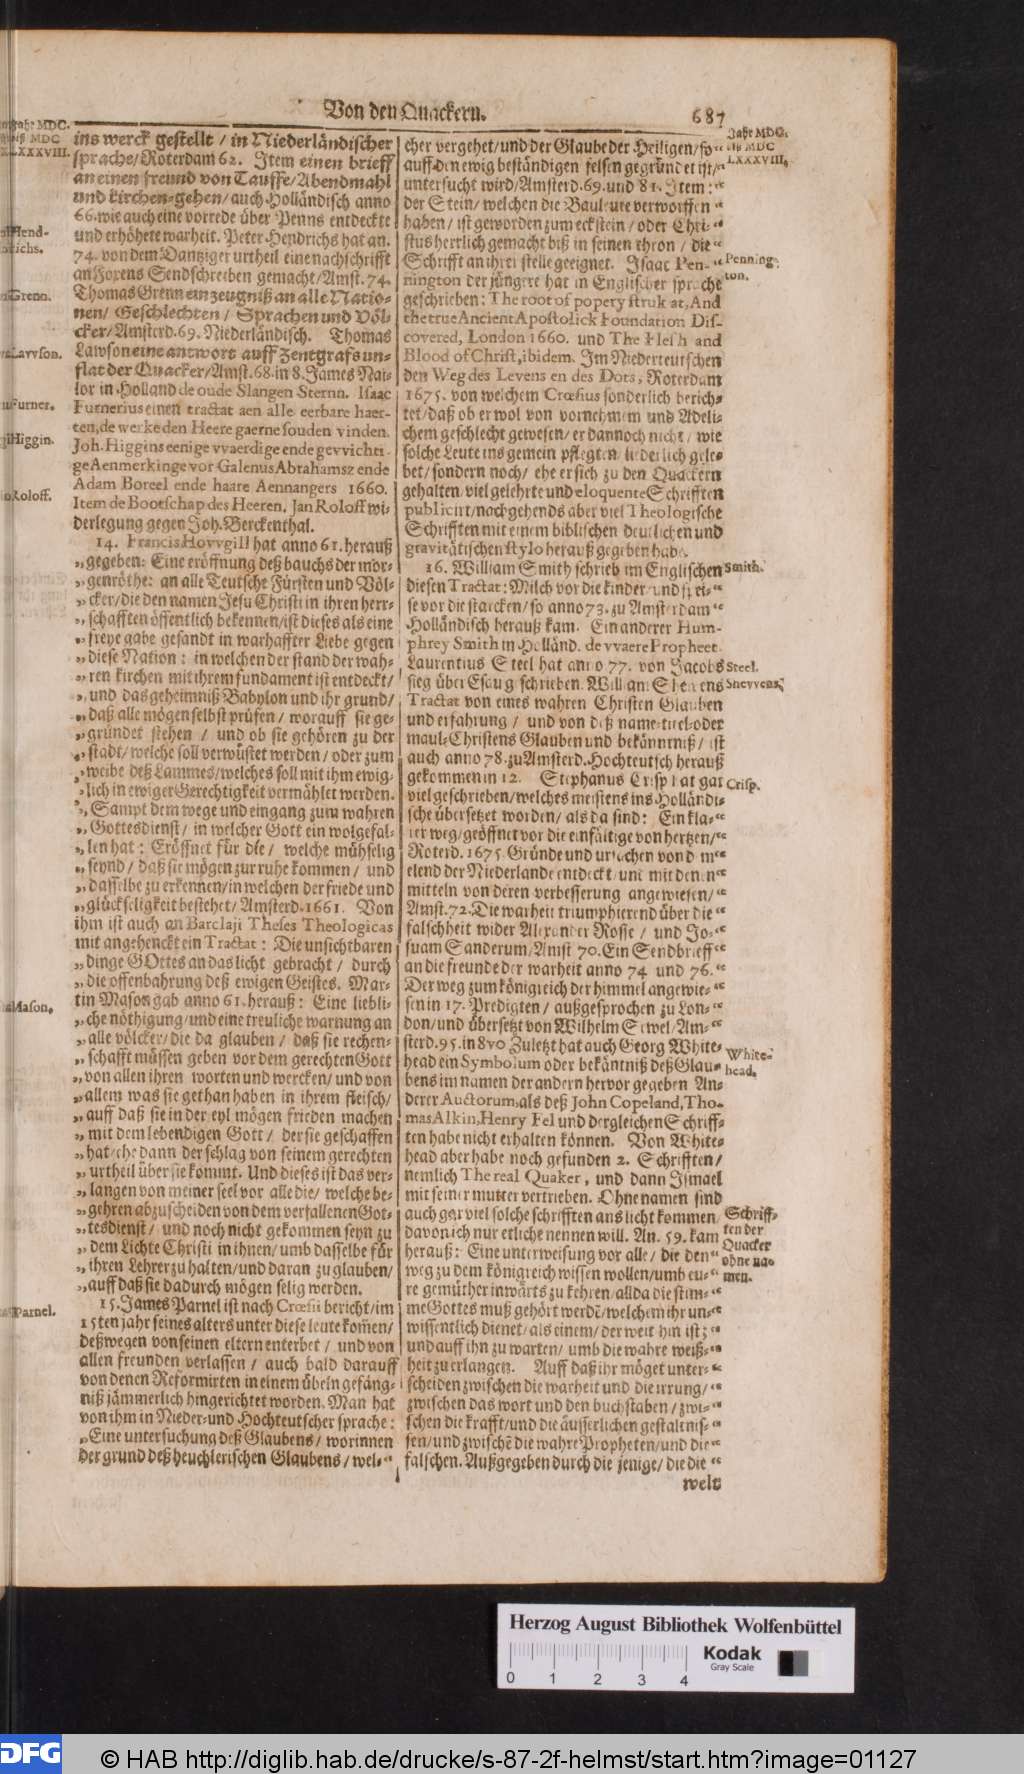 Von den Quackern.
687
Jahr MDC.
biß MDC
LXXXVIII.
ins werck gestellt / in Niederländischer
sprache/ Roterdam 62. Item einen brieff
an einen freund von Tauffe/Abendmahl
und kirchen-gehen/ auch Holländisch anno
66. wie auch eine vorrede über Penns entdeckte
und erhöhete warheit. Peter Hendrichs hat an.
74. von dem Danziger urtheil eine nachschrifft
an Foxens Sendschreiben gemacht/Amst. 74.
Thomas Grenn ein zeugniß an alle Natio-
nen/ Geschlechten / Sprachen und Völ-
cker/Amsterd. 69. Niederländisch. Thomas
Lawson eine antwort auff Zentgrafs un-
flat der Quacker/Amst. 68. in 8. James Nai-
lor in Holland de oude Slangen Sternn. Isaac
Furnerius einen tractat aen alle eerbare haer-
ten, de werke den Heere gaerne souden vinden.
Joh. Higgins eenige vvaerdige ende gevvichti-
ge Aenmerkinge vor Galenus Abrahamsz ende
Adam Boreel ende haare Aennangers 1660.
Item de Bootschap des Heeren. Jan Roloff wi-
derlegung gegen Joh. Berckenthal.
14. Francis Hovvgill hat anno 61. herauß
„ gegeben: Eine eröffnung deß bauchs der mor-
„ genröthe: an alle Teutsche Fürsten und Völ-
„ cker/die den namen Jesu Christi in ihren herr-
„ schafften öffentlich bekennen/ist dieses als eine
„ freye gabe gesandt in warhaffter Liebe gegen
„ diese Nation: in welchen der stand der wah-
„ ren kirchen mit ihrem fundament ist entdeckt/
„ und das geheimniß Babylon und ihr grund/
„ daß alle mögen selbst prüfen / worauff sie ge-
„ gründet stehen / und ob sie gehören zu der
„ stadt/ welche soll verwüstet werden / oder zum
„ weibe deß Lammes/welches soll mit ihm ewig-
„ lich in ewiger Gerechtigkeit vermählet werden.
„ Sampt dem wege und eingang zum wahren
„ Gottesdienst/ in welcher Gott ein wolgefal-
„ len hat: Eröffnet für die / welche mühselig
„ seynd / daß sie mögen zur ruhe kommen / und
„ dasselbe zu erkennen/in welchen der friede und
„ glückseligkeit bestehet/ Amsterd. 1661. Von
ihm ist auch an Barclaji Theses Theologicas
mit angehenckt ein Tractat: Die unsichtbaren
„ dinge GOttes an das licht gebracht / durch
„ die offenbahrung deß ewigen Geistes. Mar-
tin Mason gab anno 61. herauß: Eine liebli-
„ che nöthigung/und eine treuliche warnung an
„ alle völcker/die da glauben / daß sie rechen-
„ schafft müssen geben vor dem gerechten Gott
„ von allen ihren worten und wercken/ und von
„ allem was sie gethan haben in ihrem fleisch/
„ auff daß sie in der eyl mögen frieden machen
„ mit dem lebendigen Gott / der sie geschaffen
„ hat/ehe dann der schlag von seinem gerechten
„ urtheil über sie kommt. Und dieses ist das ver-
„ langen von meiner seel vor alle die/ welche be-
„ gehren abzuscheiden von dem verfallenen Got-
„ tesdienst/ und noch nicht gekommen seyn zu
„ dem Lichte Christi in ihnen/ umb dasselbe für
„ ihren Lehrer zu halten/und daran zu glauben/
„ auff daß sie dadurch mögen selig werden.
15. James Parnel ist nach Crœsii bericht/im
15ten jahr seines alters unter diese leute kom̃en/
deßwegen von seinen eltern enterbet / und von
allen freunden verlassen / auch bald darauff
von denen Reformirten in einem übeln gefäng-
niß jämmerlich hingerichtet worden. Man hat
von ihm in Nieder- und Hochteutscher sprache:
„ Eine untersuchung deß Glaubens/ worinnen
der grund deß heuchlerischen Glaubens/ wel-“
cher vergehet/und der Glaube der Heiligen/ so“
auff den ewig beständigen felsen gegründet ist/“
untersucht wird/Amsterd. 69. und 81. Item:“
der Stein/ welchen die Bauleute verworffen“
haben/ ist geworden zum eckstein/ oder Chri-“
stus herrlich gemacht biß in seinen thron / die“
Schrifft an ihrer stelle geeignet. Isaac Pen-“
nington der jüngere hat in Englischer sprache
geschrieben: The root of popery struk at, And
the true Ancient Apostolick Foundation Dis-
covered, London 1660. und The Flesh and
Blood of Christ, ibidem. Im Niederteutschen
den Weg des Levens en des Dots, Roterdam
1675. von welchem Crœsius sonderlich berich-
tet/ daß ob er wol von vornehmem und Adeli-
chem geschlecht gewesen/ er dannoch nicht / wie
solche Leute ins gemein pflegten/ liederlich gele-
bet/ sondern noch/ ehe er sich zu den Quackern
gehalten/ viel gelehrte und eloquente Schrifften
publicirt/nochgehends aber viel Theologische
Schrifften mit einem biblischen deutlichen und
gravitätischen stylo herauß gegeben habe.
16. William Smith schrieb im Englischen
diesen Tractat: Milch vor die kinder und spei-“
se vor die starcken/ so anno 73. zu Amsterdam“
Holländisch herauß kam. Ein anderer Hum-
phrey Smith in Holländ. de vvaere Propheet.
Laurentius Steel hat anno 77. von Jacobs
sieg über Esau geschrieben. Williams Shevens
Tractat von eines wahren Christen Glauben
und erfahrung / und von deß name-titel-oder
maul-Christens Glauben und bekänntniß/ ist
auch anno 78. zu Amsterd. Hochteutsch herauß
gekommen in 12. Stephanus Crisp hat gar
viel geschrieben/welches meistens ins Holländi-
sche übersetzet worden/ als da sind: Ein kla-“
rer weg/geöffnet vor die einfältige von hertzen/“
Roterd. 1675. Gründe und ursachen von dem“
elend der Niederlande entdeckt/ und mit denen“
mitteln von deren verbesserung angewiesen/“
Amst. 72. Die warheit triumphierend über die“
falschheit wider Alexander Rosse / und Jo-“
suam Sanderum/Amst 70. Ein Sendbrieff“
an die freunde der warheit anno 74 und 76.“
Der weg zum königreich der himmel angewie-“
sen in 17. Predigten/ außgesprochen zu Lon-“
don/und übersetzt von Wilhelm Sewel/Am-“
sterd. 95. in 8vo Zuletzt hat auch Georg White-
head ein Symbolum oder bekäntniß deß Glau-
bens im namen der andern hervor gegeben An-
derer Auctorum, als deß John Copeland, Tho-
mas Alkin, Henry Fel und dergleichen Schriff-
ten habe nicht erhalten können. Von White-
head aber habe noch gefunden 2. Schrifften/
nemlich The real Quaker, und dann Ismael
mit seiner mutter vertrieben. Ohne namen sind
auch gar viel solche schrifften ans licht kommen/
davon ich nur etliche nennen will. An. 59. kam
herauß: Eine unterweisung vor alle/ die den“
weg zu dem königreich wissen wollen/umb eu-“
re gemüther inwärts zu kehren/allda die stim-“
me Gottes muß gehört werdē/welchem ihr un-“
wissentlich dienet/als einem/der weit hin ist;“
und auff ihn zu warten/ umb die wahre weiß-“
heit zu erlangen. Auff daß ihr möget unter-“
scheiden zwischen die warheit und die irrung/“
zwischen das wort und den buchstaben/ zwi-“
schen die krafft/und die äusserlichen gestaltnis-“
sen/und zwischē die wahre Propheten/und die“
falschen. Außgegeben durch die jenige/ die die“
welt
Jahr MDC.
biß MDC
LXXXVIII.
Penning-
ton.
Smith.
Steel.
Snevvens.
Crisp.
White-
head.
Schriff-
ten der
Quacker
ohne na-
men.
Hend-
richs.
Grenn.
Lavvson.
Furner.
Higgin.
Roloff.
Mason.
Parnel.
Herzog August Bibliothek Wolfenbüttel
Kodak
Gray Scale
0 1 2 3 4
DFG
© HAB http://diglib.hab.de/drucke/s-87-2f-helmst/start.htm?image=01127